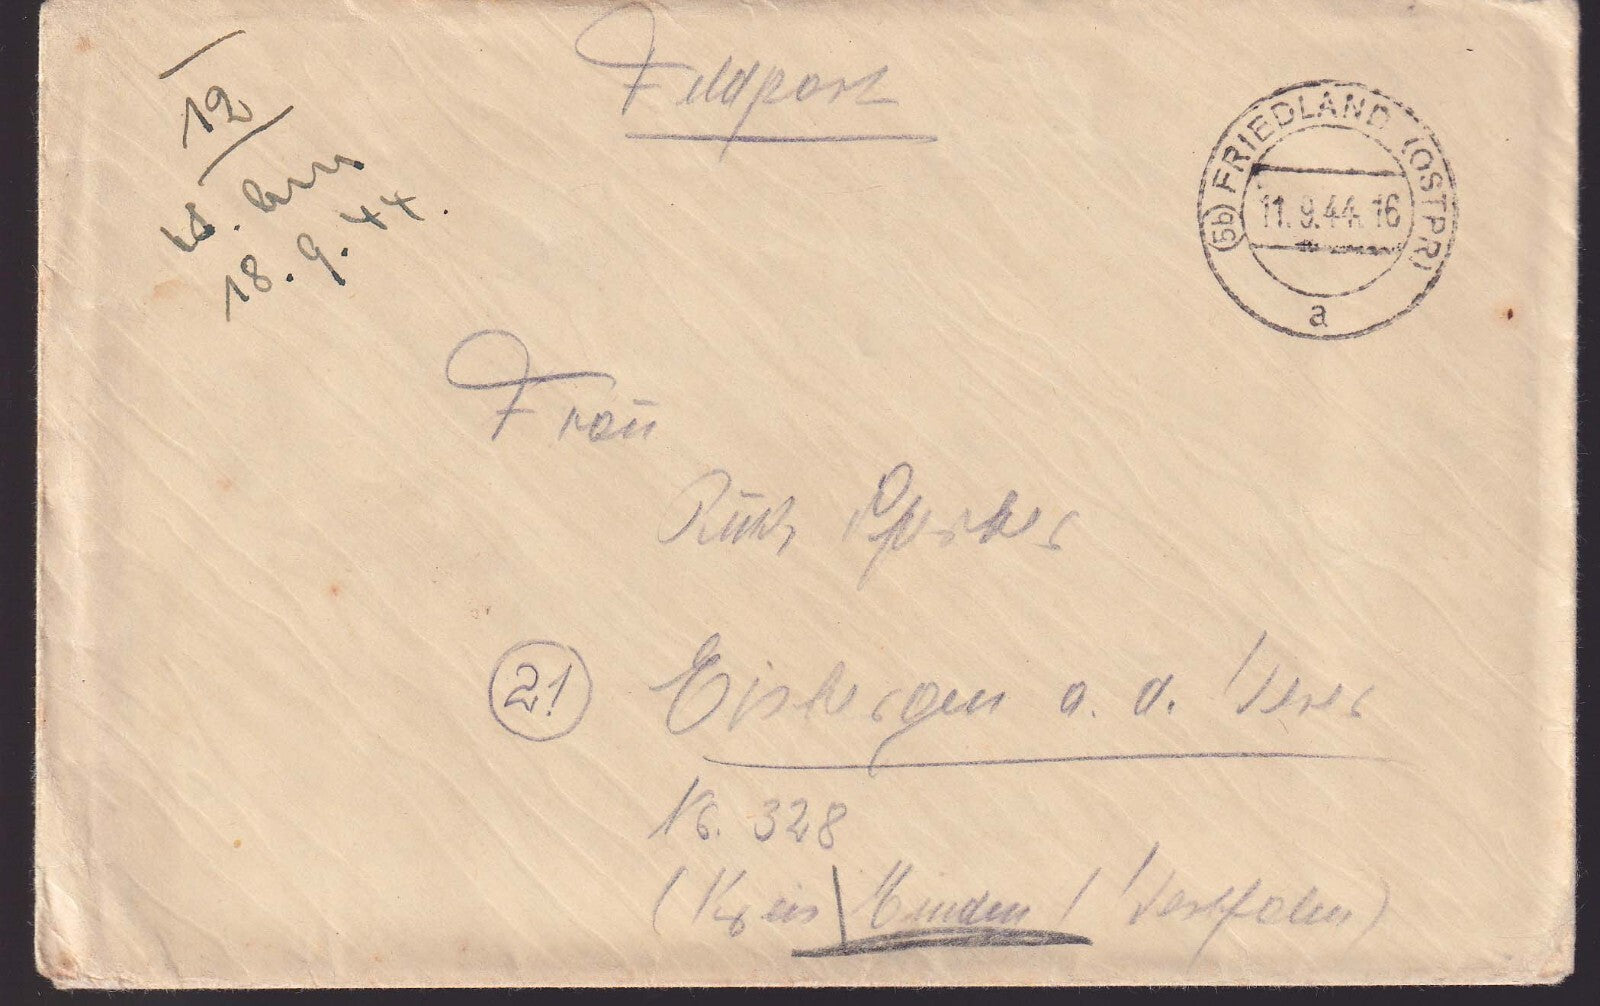 12
18.9.44.
Feldpost
(5b) FRIEDLAND (OSTPR)
11.9.44.16
a
Frau
Ruth
21 Eisbergen a. d. Weser
Nr. 328
(Kreis Minden / Westfalen)